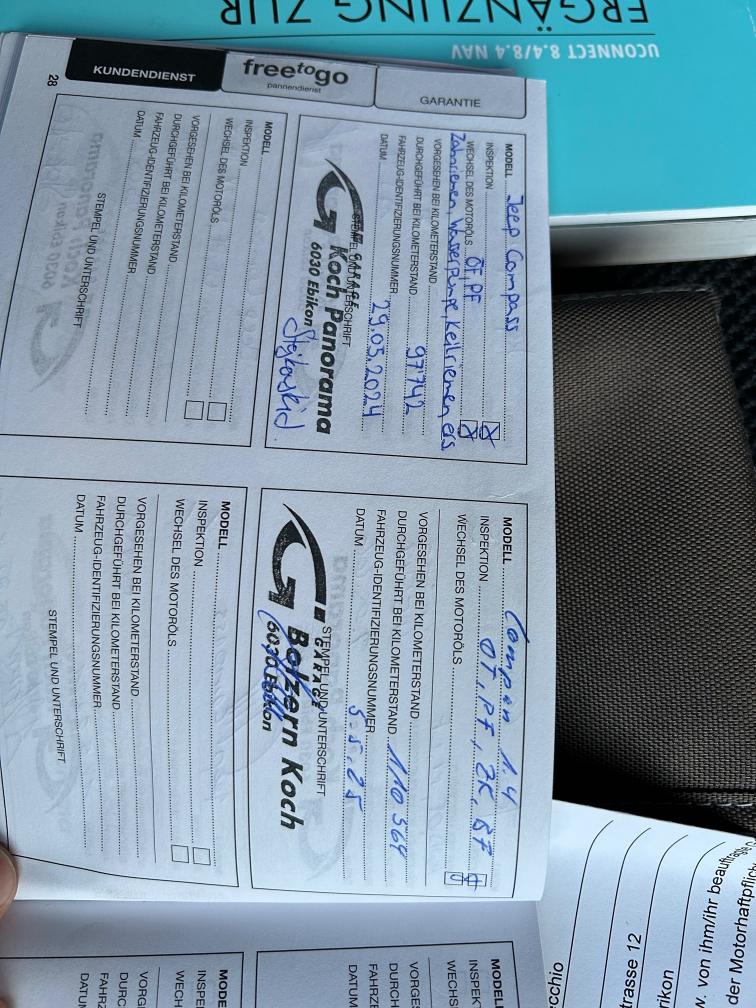 ERGÄNZUNG ZUR
UCONNECT 8.4/8.4 NAV
28
KUNDENDIENST
freetogo
pannendienst
GARANTIE
MODELL Jeep Compass
INSPEKTION
WECHSEL DES MOTORÖLS ÖF, PF
Zahnriemen, Wasserpumpe, Keilriemen ers
VORGESEHEN BEI KILOMETERSTAND
DURCHGEFÜHRT BEI KILOMETERSTAND 97'742
FAHRZEUG-IDENTIFIZIERUNGSNUMMER
DATUM 29.05.2024
STEMPEL UND UNTERSCHRIFT
GARAGE
Koch Panorama
6030 Ebikon
MODELL
INSPEKTION
WECHSEL DES MOTORÖLS
VORGESEHEN BEI KILOMETERSTAND
DURCHGEFÜHRT BEI KILOMETERSTAND
FAHRZEUG-IDENTIFIZIERUNGSNUMMER
DATUM
STEMPEL UND UNTERSCHRIFT
MODELL Compass 1.4
INSPEKTION
WECHSEL DES MOTORÖLS
VORGESEHEN BEI KILOMETERSTAND
DURCHGEFÜHRT BEI KILOMETERSTAND 110 564
FAHRZEUG-IDENTIFIZIERUNGSNUMMER
DATUM 5.5.25
STEMPEL UND UNTERSCHRIFT
GARAGE
Bolzern Koch
6030 Ebikon
MODELL
INSPEKTION
WECHSEL DES MOTORÖLS
VORGESEHEN BEI KILOMETERSTAND
DURCHGEFÜHRT BEI KILOMETERSTAND
FAHRZEUG-IDENTIFIZIERUNGSNUMMER
DATUM
STEMPEL UND UNTERSCHRIFT
MODELL
INSPE
WECHS
VORGE
DURCH
FAHRZE
DATUM
MODE
INSPE
WECH
VORG
DURC
FAHR
DATU
von ihm/ihr beauftragte
der Motorhaftpflich
rikon
trasse 12
ecchio